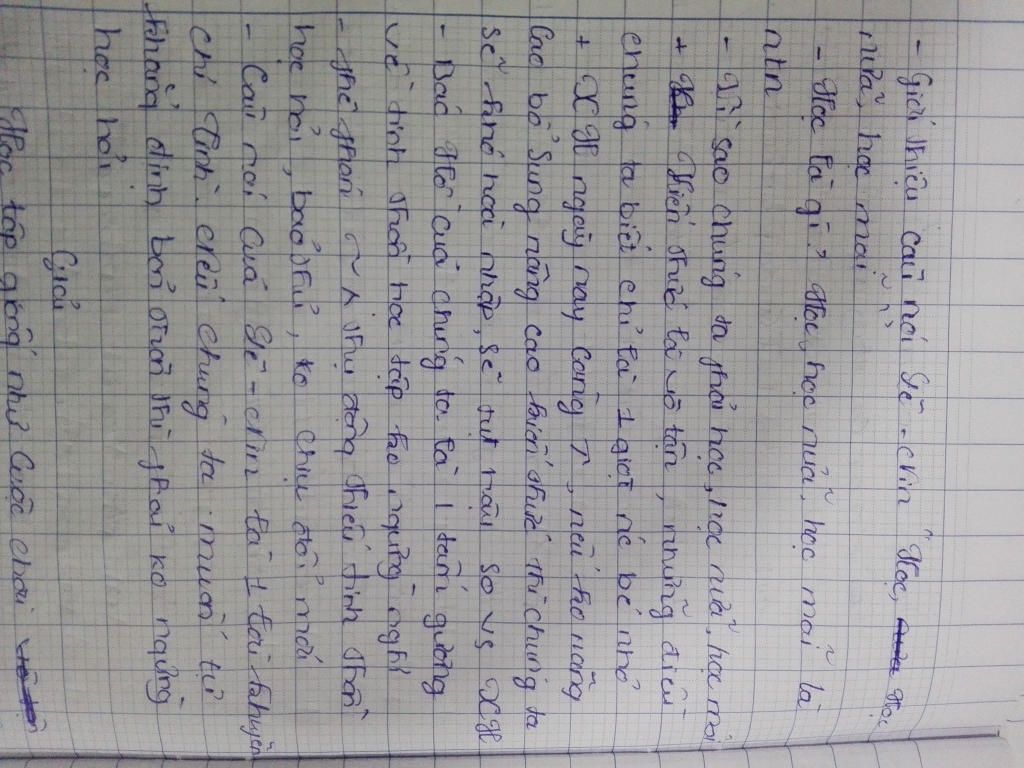 - Giới thiệu câu nói Lê-nin "Học, học
nữa, học mãi"
- Học là gì? Học, học nữa, học mãi là
ntn
- Vì sao chúng ta phải học, học nữa, học mãi
+ Kiến thức là vô tận, những điều
chúng ta biết chỉ là 1 giọt nc bé nhỏ
+ XH ngày nay càng ↑, nếu ko nâng
cao bổ sung nâng cao kiến thức thì chúng ta
sẽ khó hoà nhập, sẽ tụt hậu so vs XH
- Bác Hồ của chúng ta là 1 tấm gương
về tinh thần học tập ko ngừng nghỉ
- phê phán thụ động thiếu tinh thần
học hỏi, bảo thủ, ko chịu đổi mới
- Câu nói của Lê-nin là 1 lời khuyên
chí tình. nếu chúng ta muốn tự
khẳng định bản thân thì phải ko ngừng
học hỏi
Giải
Học tập giống như cuốc chơi